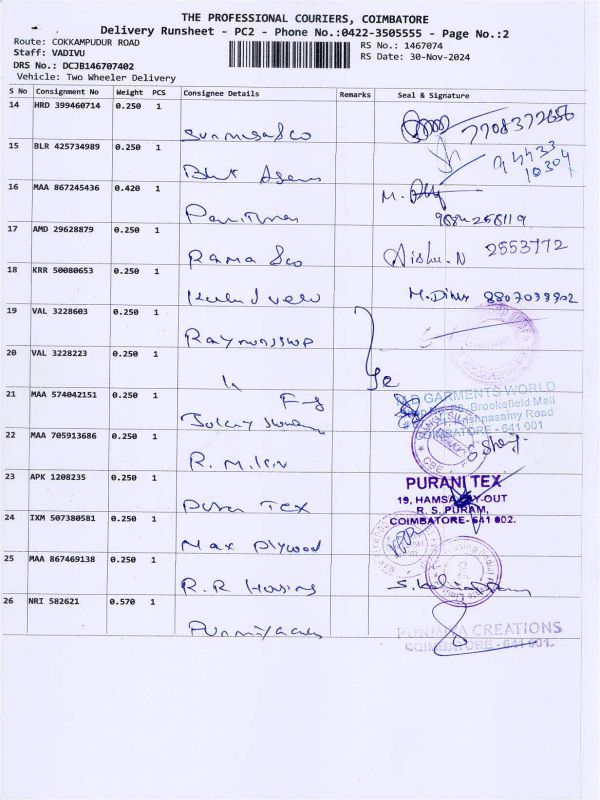 THE PROFESSIONAL COURIERS, COIMBATORE
Delivery Runsheet - PC2 - Phone No.:0422-3505555 - Page No.:2
Route: COKKAMPUDUR ROAD
Staff: VADIVU
DRS No.: DCJB146707402
Vehicle: Two Wheeler Delivery
RS No.: 1467074
RS Date: 30-Nov-2024
S No Consignment No Weight PCS Consignee Details Remarks Seal & Signature
14 HRD 399460714 0.250 1
7708372656
15 BLR 425734989 0.250 1
94433
10304
16 MAA 867245436 0.420 1
M.
17 AMD 29628879 0.250 1
Rama &co Aishu.N 2553772
18 KRR 50080653 0.250 1
8807099902
19 VAL 3228603 0.250 1
20 VAL 3228223 0.250 1
21 MAA 574042151 0.250 1
GARMENTS WORLD
Brookefield Mall
Krishnasamy Road
COIMBATORE - 641 001
22 MAA 705913686 0.250 1
R.M.
23 APK 1208235 0.250 1
Tex
PURANI TEX
19, HAMSA LAY-OUT
R. S. PURAM,
COIMBATORE - 641 002.
24 IXM 507380581 0.250 1
Max Plywood
25 MAA 867469138 0.250 1
R.R Housing
26 NRI 582621 0.570 1
CREATIONS
COIMBATORE - 641 001.